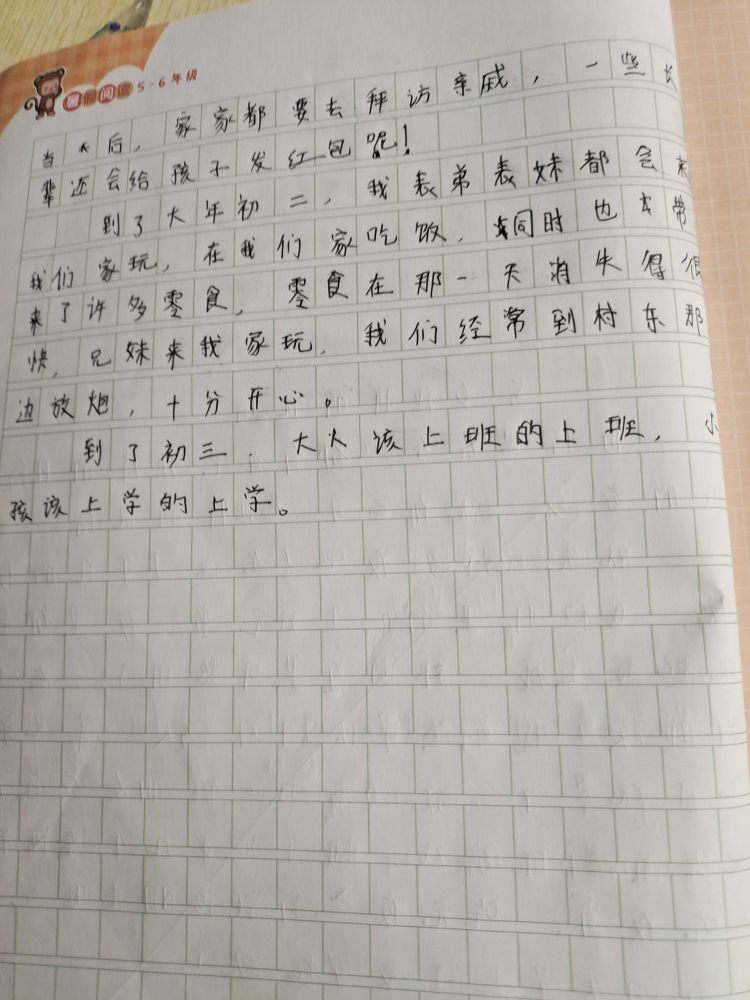 暑假阅读 5-6年级
当天后，家家都要去拜访亲戚，一些长
辈还会给孩子发红包呢！
到了大年初二，我表弟表妹都会来
我们家玩，在我们家吃饭，同时也带
来了许多零食，零食在那一天消失得很
快，兄妹来我家玩，我们经常到村东那
边放炮，十分开心。
到了初三，大人该上班的上班，小
孩该上学的上学。